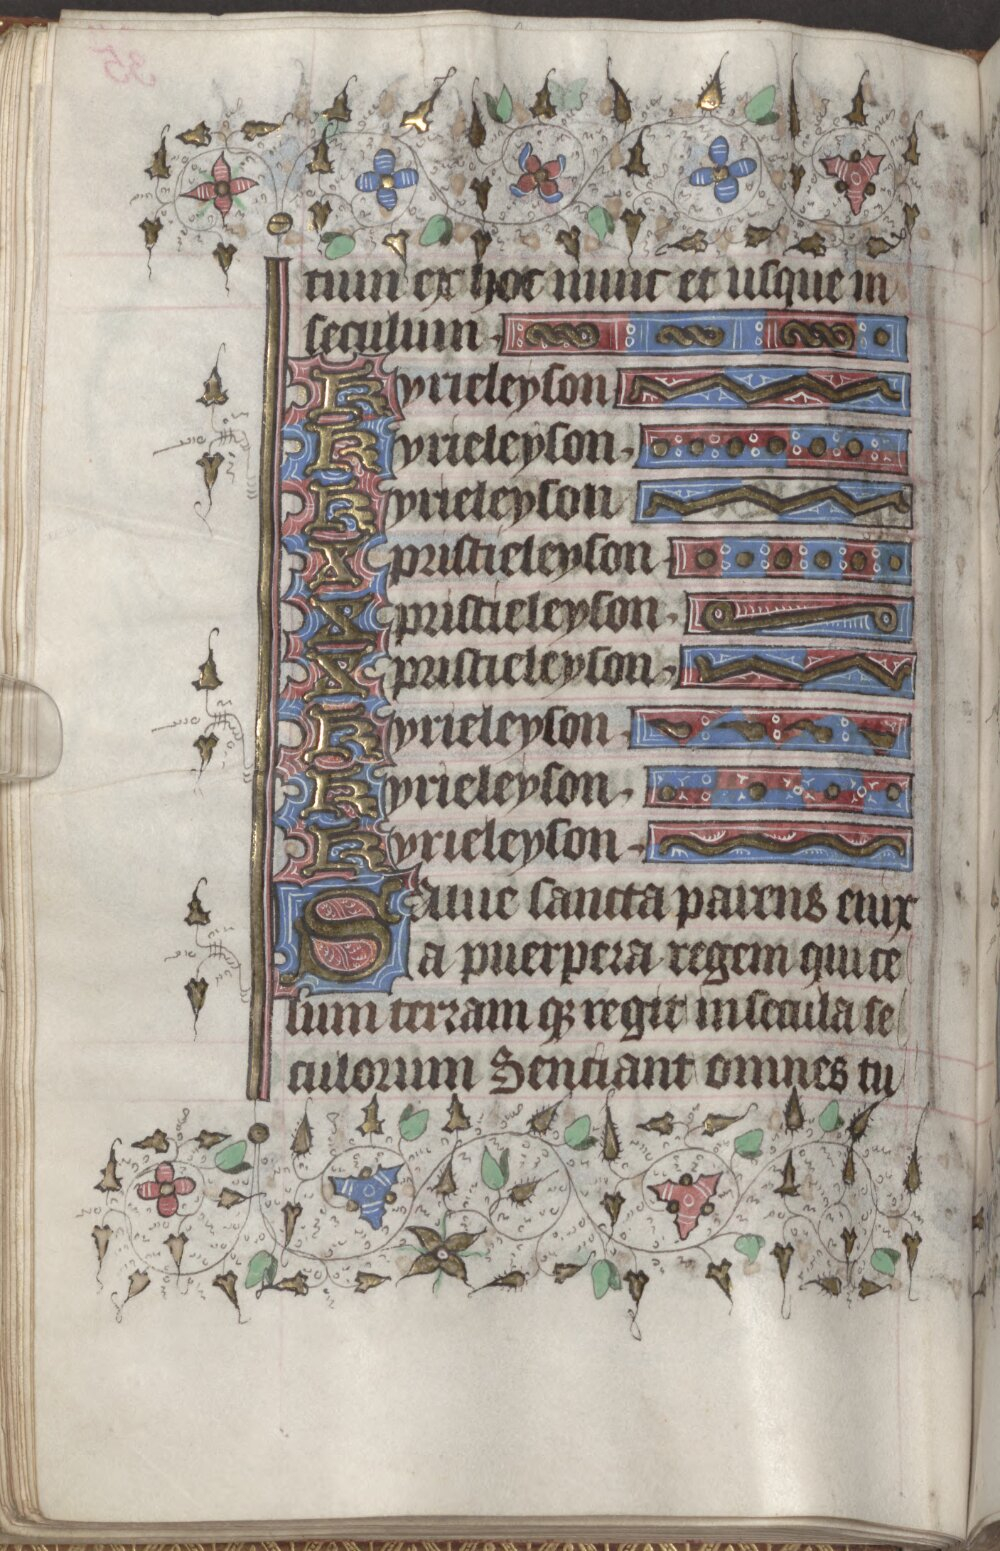 tium ex hoc nunc et usque in
seculum
Kyrieleyson
Kyrieleyson
Kyrieleyson
Xpristieleyson
Xpristieleyson
Xpristieleyson
Kyrieleyson
Kyrieleyson
Kyrieleyson
Salue sancta parens enix
a puerpera regem qui ce
lum terram qꝫ regit in secula se
culorum Senciant omnes tu